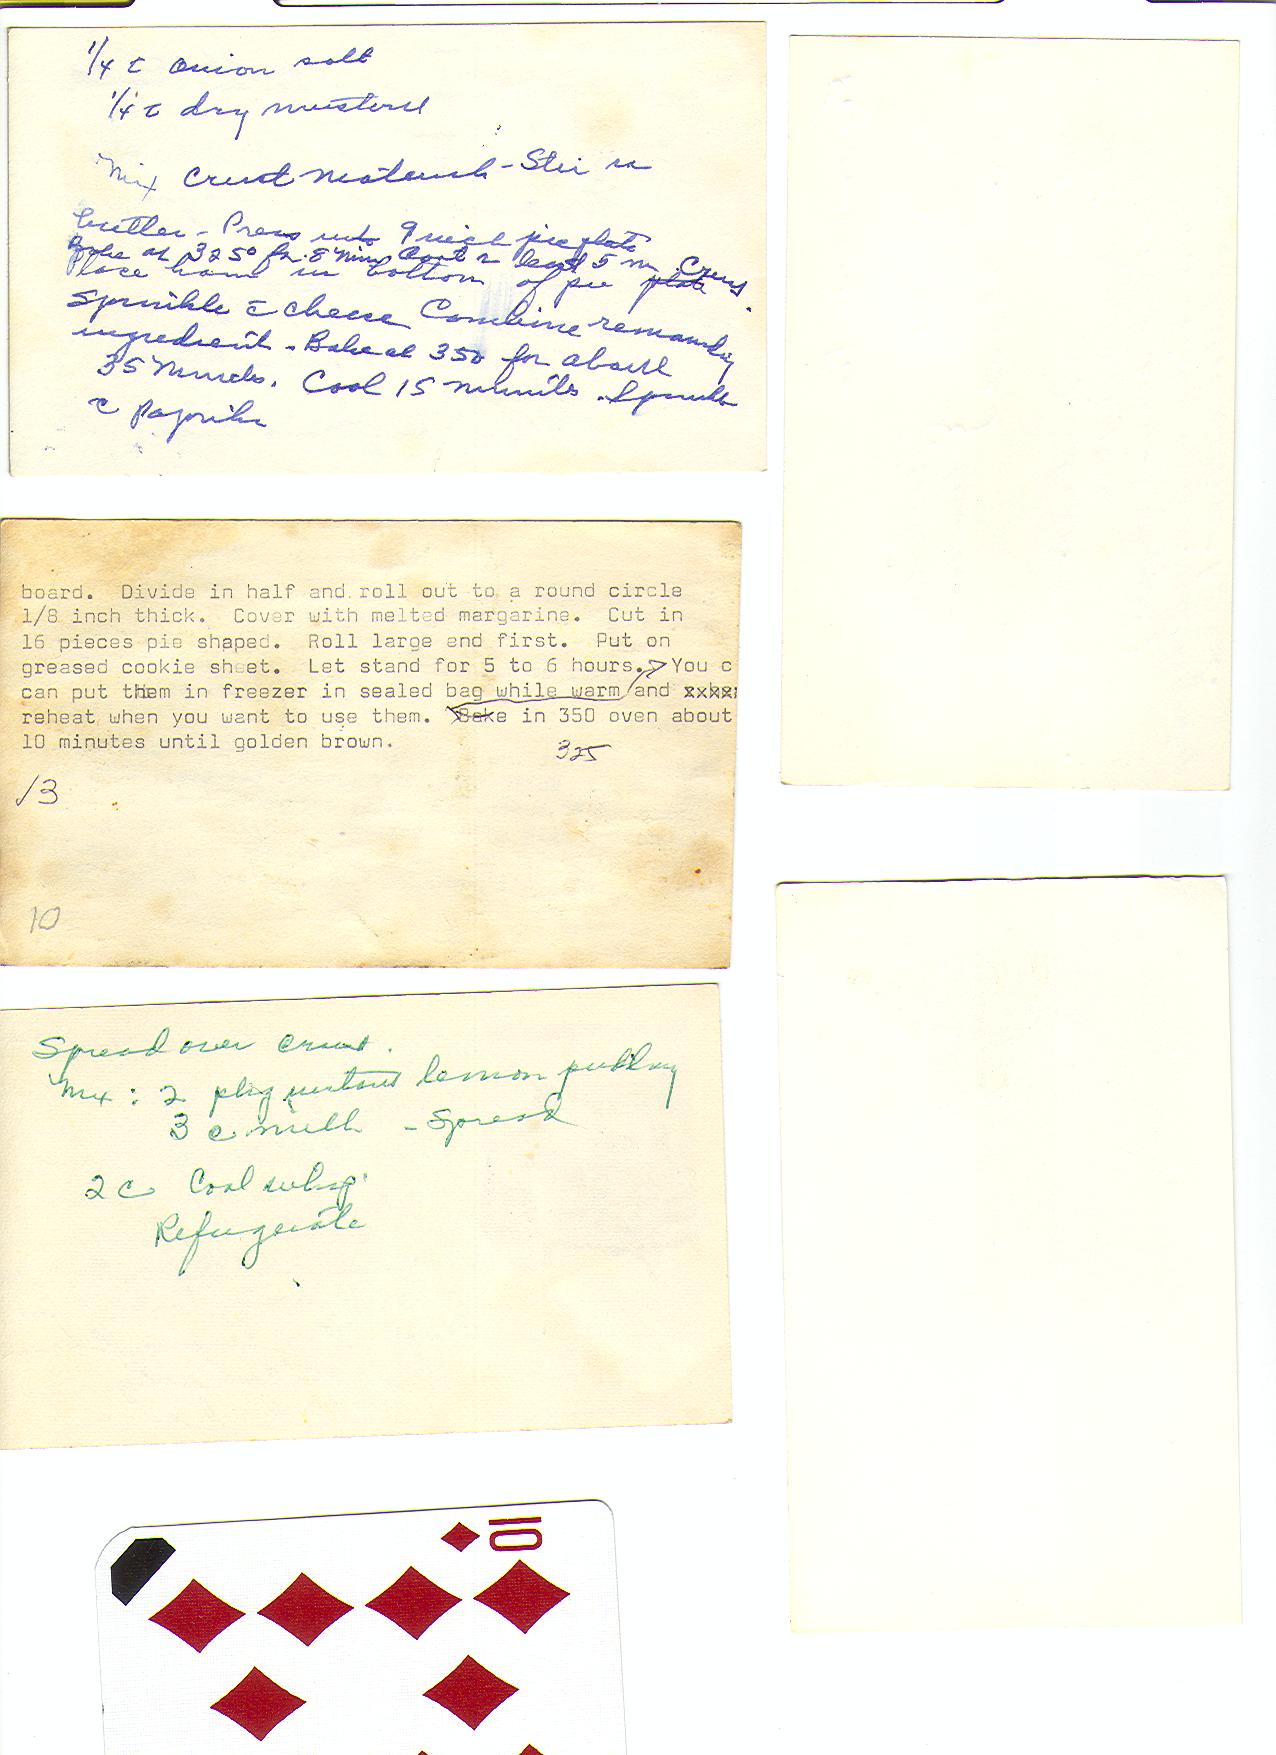 1/4 t onion salt
1/4 t dry mustard
Mix Crust materials - Stir in
butter - Press into 9 inch pie plate
Bake at 325° for 8 min Cool at least 5 m
Place ham in bottom of pie plate.
Sprinkle c̄ cheese Combine remaining
ingredients - Bake at 350 for about
35 Minutes. Cool 15 minutes. Sprinkle
c̄ Paprika
board. Divide in half and roll out to a round circle
1/8 inch thick. Cover with melted margarine. Cut in
16 pieces pie shaped. Roll large end first. Put on
greased cookie sheet. Let stand for 5 to 6 hours. You c
can put them in freezer in sealed bag while warm and xxxx
reheat when you want to use them. Bake in 350 oven about
10 minutes until golden brown.
325
13
10
Spread over crust.
Mix: 2 pkg instant lemon pudding
3 c milk - Spread
2 c Cool whip
Refrigerate
10